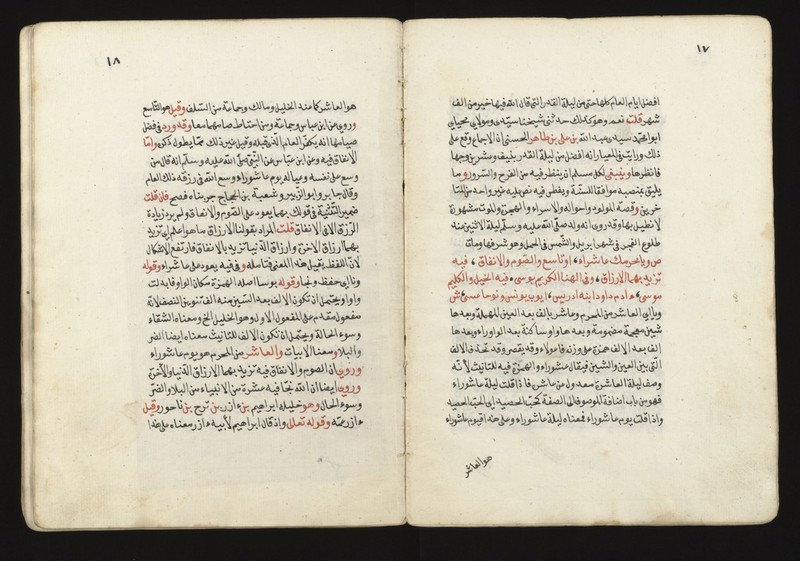 ١٧
افضل ايام العام كلها حتى من ليلة القدر التي قال الله فيها خير من الف
شهر قلت نعم وهو كذلك حدثنى شيخنا سيدى ومولاي محمد بن
ابو محمد سيدى عبد الله بن على بن طاهر الحسنى ان الاجماع وقع على
ذلك ورايت في المعيار انه افضل من ليلة القدر بنيف وعشرين وجها
فانظرها وينبغى لكل مسلم ان يظهر فيه من الفرح والسرور ما
يليق بمنصبه موافقا للسنة ويفطر فيه
وقصة المولود واحواله والاسراء والهجرة والموت مشهورة
لا نطيل بها وقد روى انه ولد صلى الله عليه وسلم ليلة الاثنين عند
طلوع الفجر في شهر ابريل والشمس في الحمل
ص ويا محرمك عاشراء، او تاسع والصوم والانفاق، فيه
تزيد بهما الارزاق، وفى الهنا الكريم يوسى، فيه الخليل والكليم
موسى، ءادم داود ابنه ادريس، ايوب يونس ونوح عيسى ش
وياتى العاشر من المحرم وعاشر بالف بعد العين المهملة وبعدها
شين معجمة مضمومة وبعدها واو ساكنة بعد الواو راء وبعدها
الف بعد الالف همزة على وزن فاعولاء وقد يقصر وقد تحذف الالف
التي بين العين والشين فيقال عشوراء والهمزة فيه للتانيث لانه
وصف ليلة العاشرة معدول عن عاشر فاذا قلت ليلة عاشوراء
فهو من باب اضافة الموصوف الى الصفة كحبة الحصيد اي الحبة الحصيد
واذا قلت يوم عاشوراء فمعناه ليلة عاشوراء وعلى هذا فيوم عاشوراء
هو العاشر
١٨
هو العاشر كما عند الخليل ومالك وجماعة من السلف وقيل هو التاسع
وروي عن ابن عباس وجماعة ومن احتاط صامهما معا وقد ورد في فضل
صيامها انه يكفر العام الذى قبله وقيل غير ذلك مما يطول ذكره واما
الانفاق فيه وعن ابن عباس عن النبي صلى الله عليه وسلم انه قال من
وسع على نفسه وعياله يوم عاشوراء وسع الله في رزقه ذلك العام
وقال جابر وابو الزبير وشعبة بن الحجاج جربناه فصح فان قلت
ضمير التثنية في قولك بهما يعود على الصوم والانفاق ولم يرد زيادة
الرزق الا في الانفاق قلت المراد بقولنا الارزاق ما هو اعم اي تزيد
بهما ارزاق الاخرى وارزاق الدنيا تزيد بالانفاق فارتفع الاشكال
لان اللفظ يقبل هذا المعنى فتامله وفى فيه يعود على عاشراء وقوله
وقوله بوسا اصله الهمزة مكان الواو فابدلت
واوا ويحتمل ان تكون الالف بعد السين منه الف تنوين النصف لانه
مفعول مقدم على المفعول الاول وهو الخليل الخ ومعناه الشقاء
وسوء الحالة ويحتمل ان تكون الالف للتانيث معناه ايضا الضر
والبلاء ومعنا الابيات والعاشر من المحرم هو يوم عاشوراء
وروي ان الصوم والانفاق فيه تزيد بهما الارزاق الدنيا والاخرى
وروي ايضا ان الله نجا فيه عشرة من الانبياء من البلاء والضر
وسوء الحال وهو خليله ابراهيم بن ءازر بن ترح بن ناحور وقيل
ءازر عمه وقوله تعلى واذ قال ابراهيم لابيه ءازر معناه على هذا